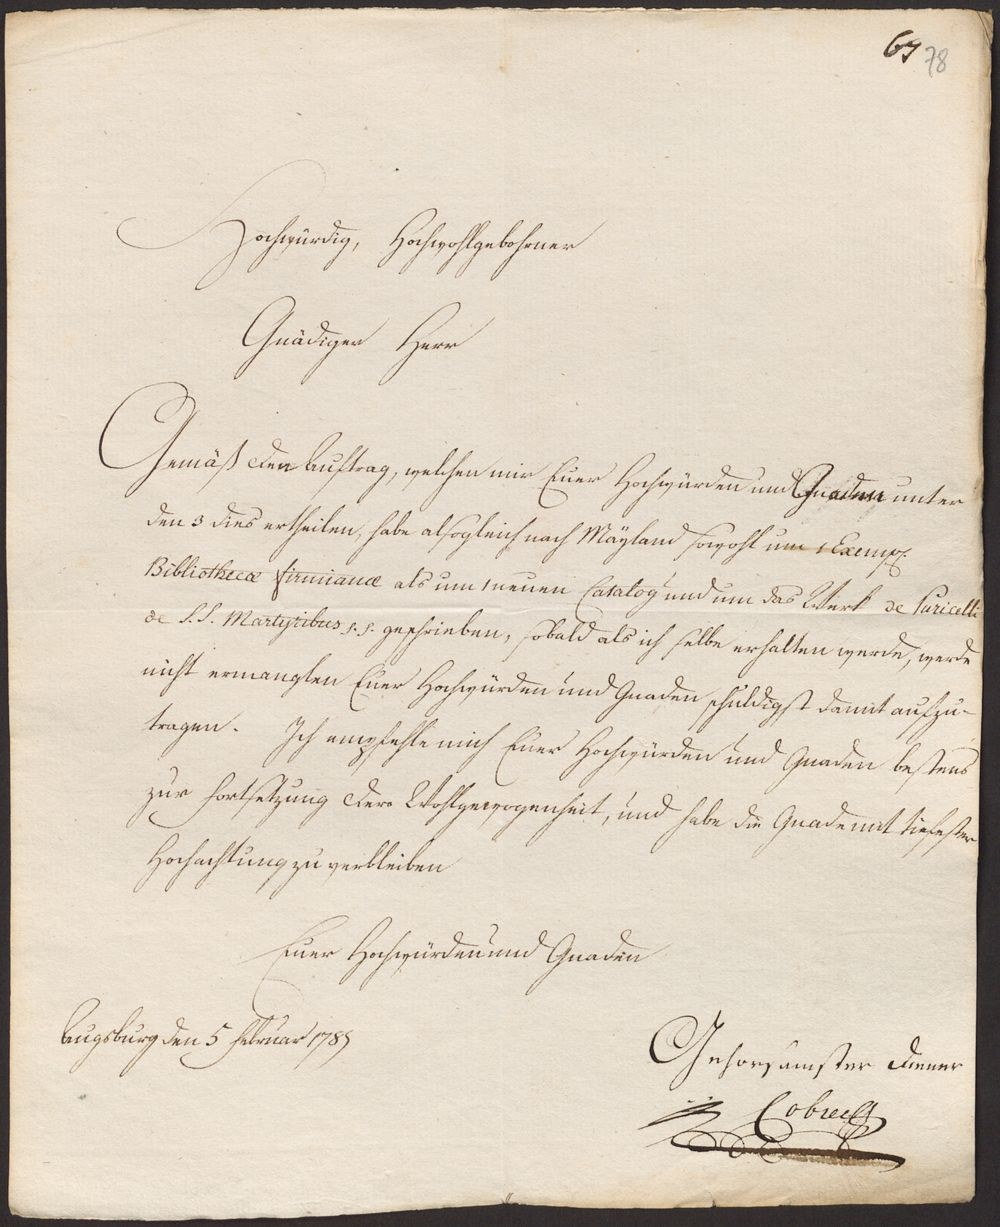 67 78
Hochwürdig, Hochwohlgebohrner
Gnädiger Herr
Gemäß den Auftrag, welchen mir Euer Hochwürden und Gnaden unter
den 3 dies ertheilen, habe alsogleich nach Mäyland sowohl um 1 Exempl.
Bibliothecæ firmianæ als um 1 neuen Catalog und um das Werk de Puricelli
de S.S. Martyribus p.p. geschrieben, sobald als ich selbe erhalten werde, werde
nicht ermanglen Euer Hochwürden und Gnaden schuldigst damit aufzu-
tragen. Ich empfehle mich Euer Hochwürden und Gnaden bestens
zur Fortsetzung dero Wohlgewogenheit, und habe die Gnade mit tiefester
Hochachtung zu verbleiben
Euer Hochwürden und Gnaden
Augsburg den 5 Februar 1785
Gehorsamster Diener